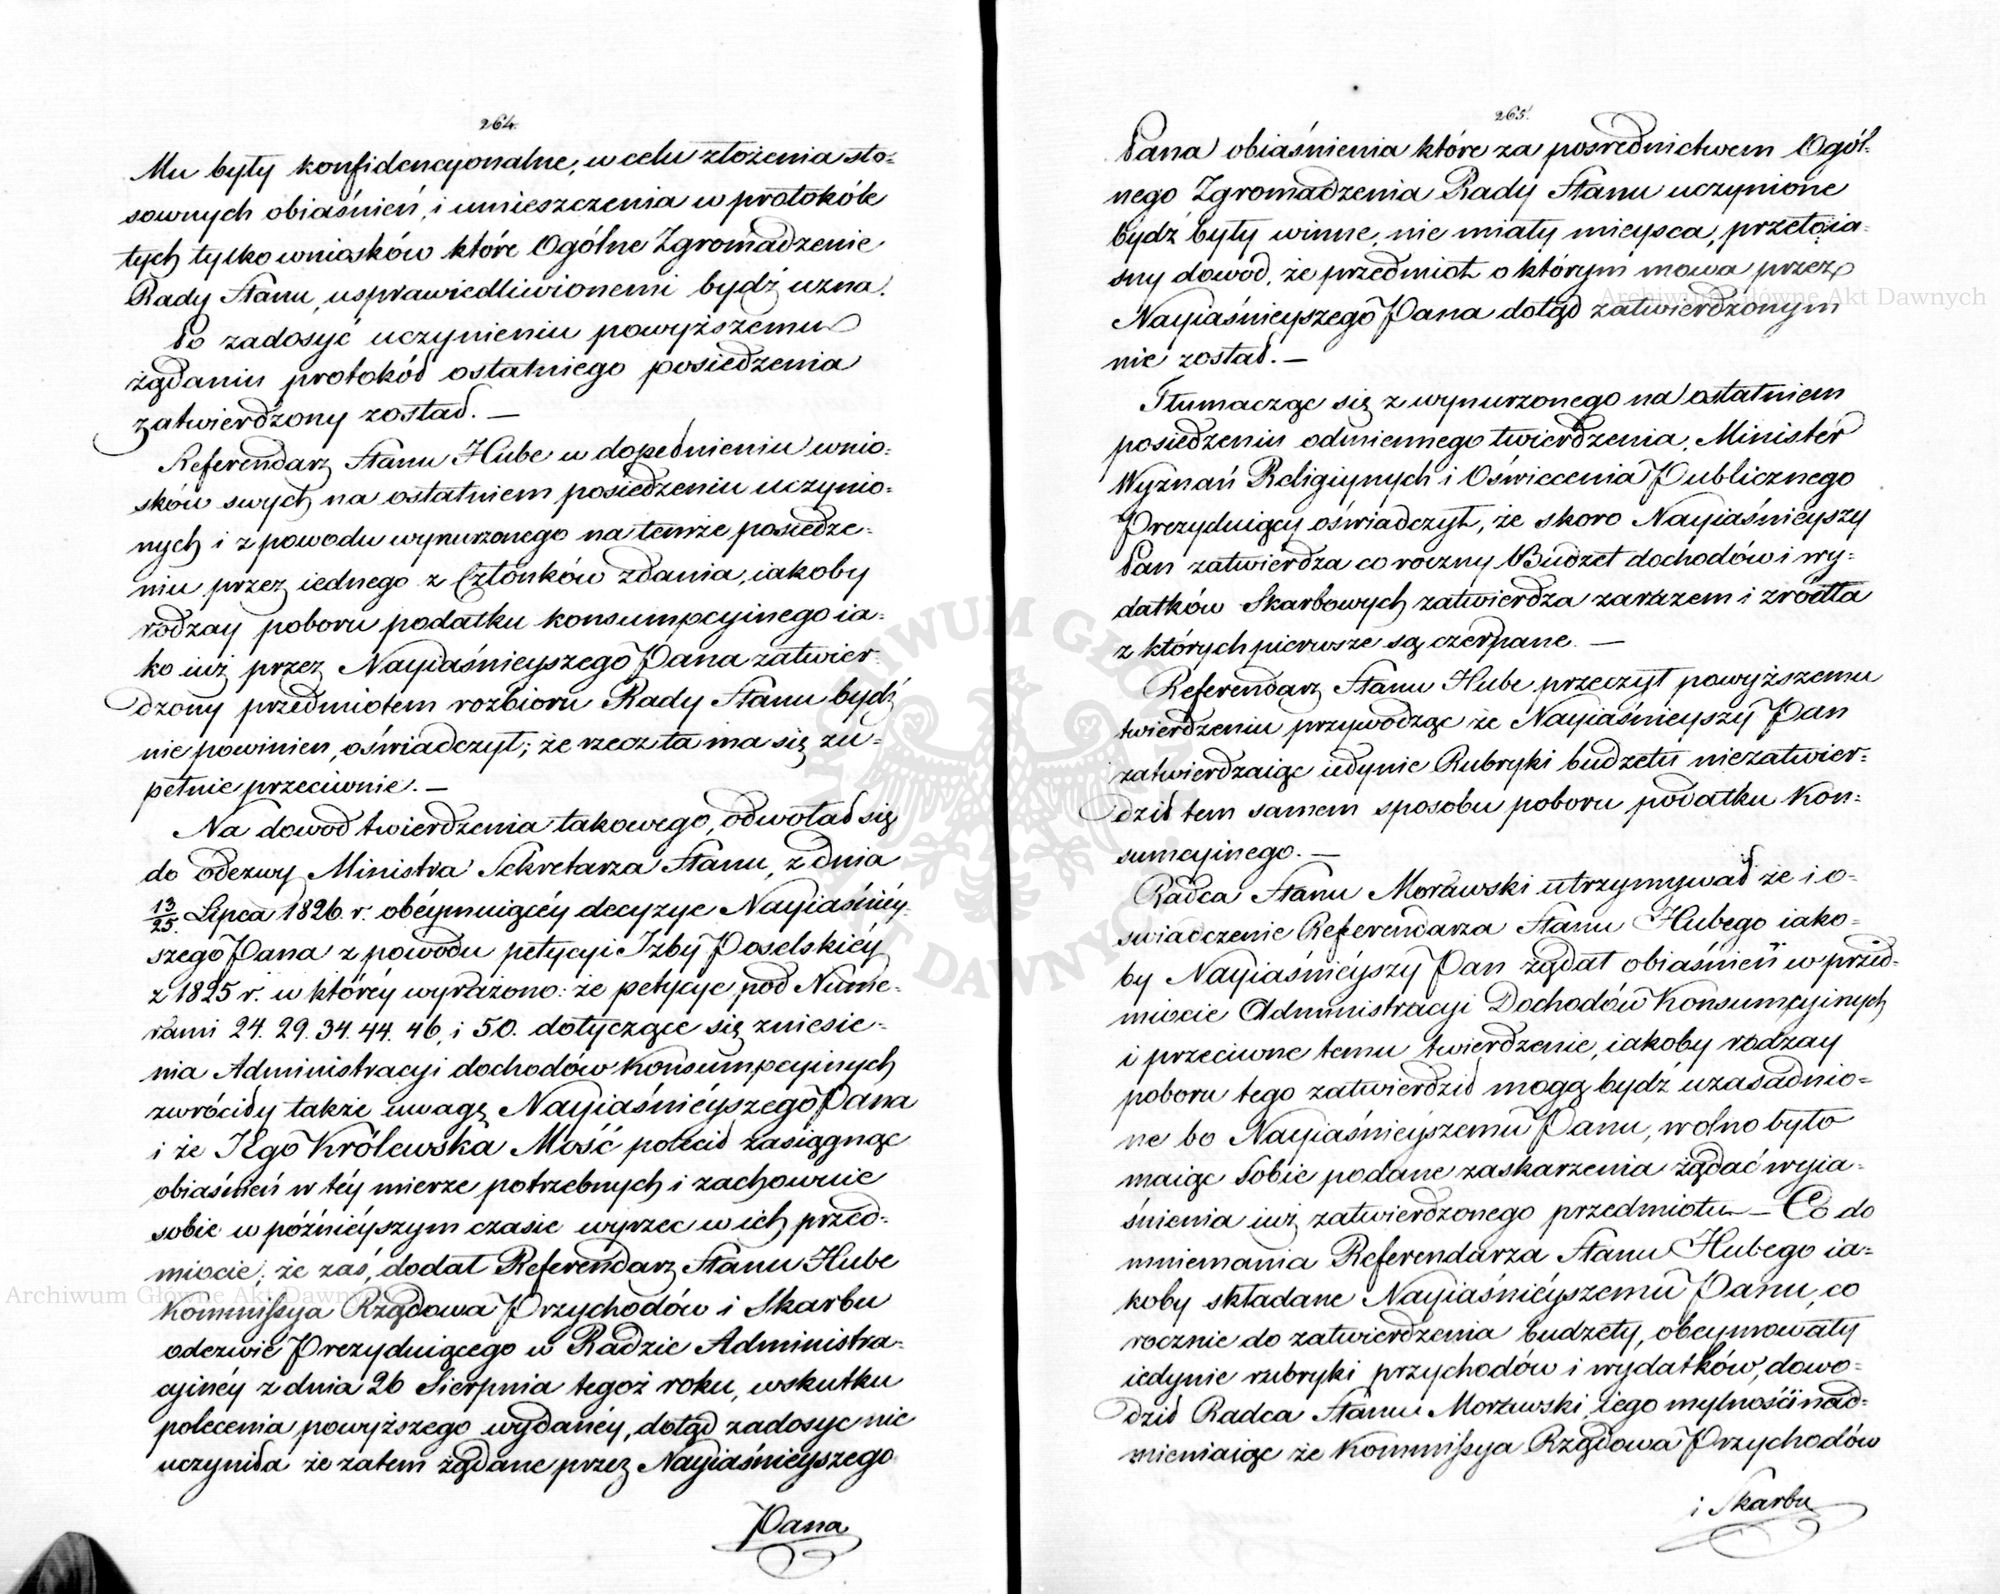 264.
Mu były konfidencyjonalne, w celu złożenia sto-
sownych obiaśnień, i umieszczenia w protokóle
tych tylko wniosków które Ogólne Zgromadzenie
Rady Stanu, usprawiedliwionemi bydź uzna.
Po zadosyć uczynieniu powyższemu
żądaniu protokół ostatniego posiedzenia
zatwierdzony został. —
Referendarz Stanu Hube w dopełnieniu wnio-
sków swych na ostatniem posiedzeniu uczynio-
nych i z powodu wynurzonego na temże posiedze-
niu przez iednego z Członków zdania, iakoby
rodzay poboru podatku konsumpcyinego ia-
ko iuż przez Nayiaśnieyszego Pana zatwier-
dzony przedmiotem rozbioru Rady Stanu bydź
nie powinien, oświadczył; że rzecz ta ma się zu-
pełnie przeciwnie. —
Na dowód twierdzenia takowego, odwołał się
do odezwy Ministra Sekretarza Stanu, z dnia
13/25. Lipca 1826 r. obéymuiącéy decyzye Nayiaśniéy-
szego Pana z powodu petycyi Izby Poselskiéy
z 1825 r. w któréy wyrażono: że petycye pod Nume-
rami 24. 29. 34. 44. 46, i 50. dotyczące się zniesie-
nia Administracyi dochodów Konsumpcyinych
zwróciły także uwagę Nayiaśniéyszego Pana
i że JEgo Królewska Mość polecił zasiągnąc
obiaśnień w téy mierze potrzebnych i zachownie
sobie w późniéyszym czasie wyrzec w ich przed-
miocie; że zaś, dodał Referendarz Stanu Hube
Kommissya Rządowa Przychodów i Skarbu
odezwie Prezyduiącego w Radzie Administra-
cyinéy z dnia 26 Sierpnia tegoż roku, wskutku
polecenia powyższego wydanéy, dotąd zadosyc nie
uczyniła że zatem żądane przez Nayiaśnieyszego
Pana
265.
Pana obiaśnienia które za posrednictwem Ogól-
nego Zgromadzenia Rady Stanu uczynione
bydź były winne, nie miały mieysca, przeto ia-
sny dowód, że przedmiot o którym mowa przez
Nayiaśnieyszego Pana dotąd zatwierdzonym
nie został. —
Tłumacząc się z wynurzonego na ostatniem
posiedzeniu odmiennego twierdzenia, Minister
Wyznań Religiynych i Oświecenia Publicznego
Prezyduiący oświadczył, że skoro Nayiaśnieyszy
Pan zatwierdza co roczny Budzet dochodów i wy-
datków Skarbowych zatwierdza zarazem i zrodła
z których pierwsze są czerpane. —
Referendarz Stanu Hube przeczył powyższemu
twierdzeniu przywodząc że Nayiaśnieyszy Pan
zatwierdzaiąc iedynie Rubryki budzetu niezatwier-
dził tem samem sposobu poboru podatku Kon-
sumcyinego. —
Radca Stanu Morawski utrzymywał że i o-
swiadczenie Referendarza Stanu Hubego iako-
by Nayiaśniéyszy Pan żądał obiaśnień w przed-
miocie Administracyi Dochodów Konsumcyinych
i przeciwne temu twierdzenie, iakoby rodzay
poboru tego zatwierdził mogą bydź uzasadnio-
ne bo Nayiaśniéyszemu Panu, wolno było
maiąc Sobie podane zaskarzenia żądać wyia-
śnienia iuż zatwierdzonego przedmiotu — Co do
mniemania Referendarza Stanu Hubego ia-
koby składane Nayiaśniéyszemu Panu, co
rocznie do zatwierdzenia budzety, obeymowały
iedynie rubryki przychodów i wydatków, dowo-
dził Radca Stanu Morawski iego mylności nad-
mieniaiąc że Kommissya Rządowa Przychodów
i Skarbu
Archiwum Główne Akt Dawnych
Archiwum Główne Akt Dawnych
ARCHIWUM GŁÓWNE AKT DAWNYCH